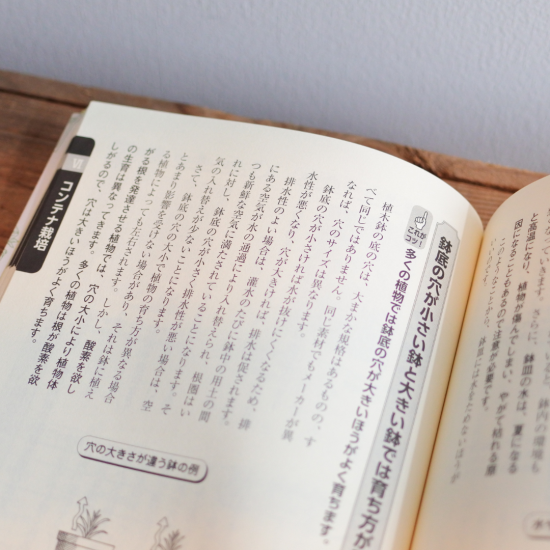 と高温になり、植物が傷んでしまい、やがて枯れる原
因になることもあるので注意が必要です。
鉢底の穴が小さい鉢と大きい鉢では育ち方が
これが
コツ!
多くの植物では鉢底の穴が大きいほうがよく育ちます。
植木鉢の底の穴は、大まかな規格はあるものの、す
べて同じではありません。同じ素材でもメーカーが異
なれば、穴のサイズは異なります。
鉢底の穴が小さければ水が抜けにくくなるため、排
水性が悪くなり、穴が大きければ、排水は促されます。
排水性のよい場合は、灌水のたびに鉢中の用土の間
にある空気が水の通過により入れ替えられ、根圏はい
つも新鮮な空気に満たされていることになります。そ
れに対し、鉢底の穴が小さく排水性が悪い場合は、空
気の入れ替えが少ないことになります。
さて、鉢底の穴の大小で植物の育ち方が異なる場合
とあまり影響を受けない場合があり、それは鉢に植え
る植物によっても左右されます。しかし、酸素を欲し
がる根を発達させる植物では、穴の大小により植物体
の生育は異なってきます。多くの植物は根が酸素を欲
しがるので、穴は大きいほうがよく育ちます。
コンテナ栽培
穴の大きさが違う鉢の例